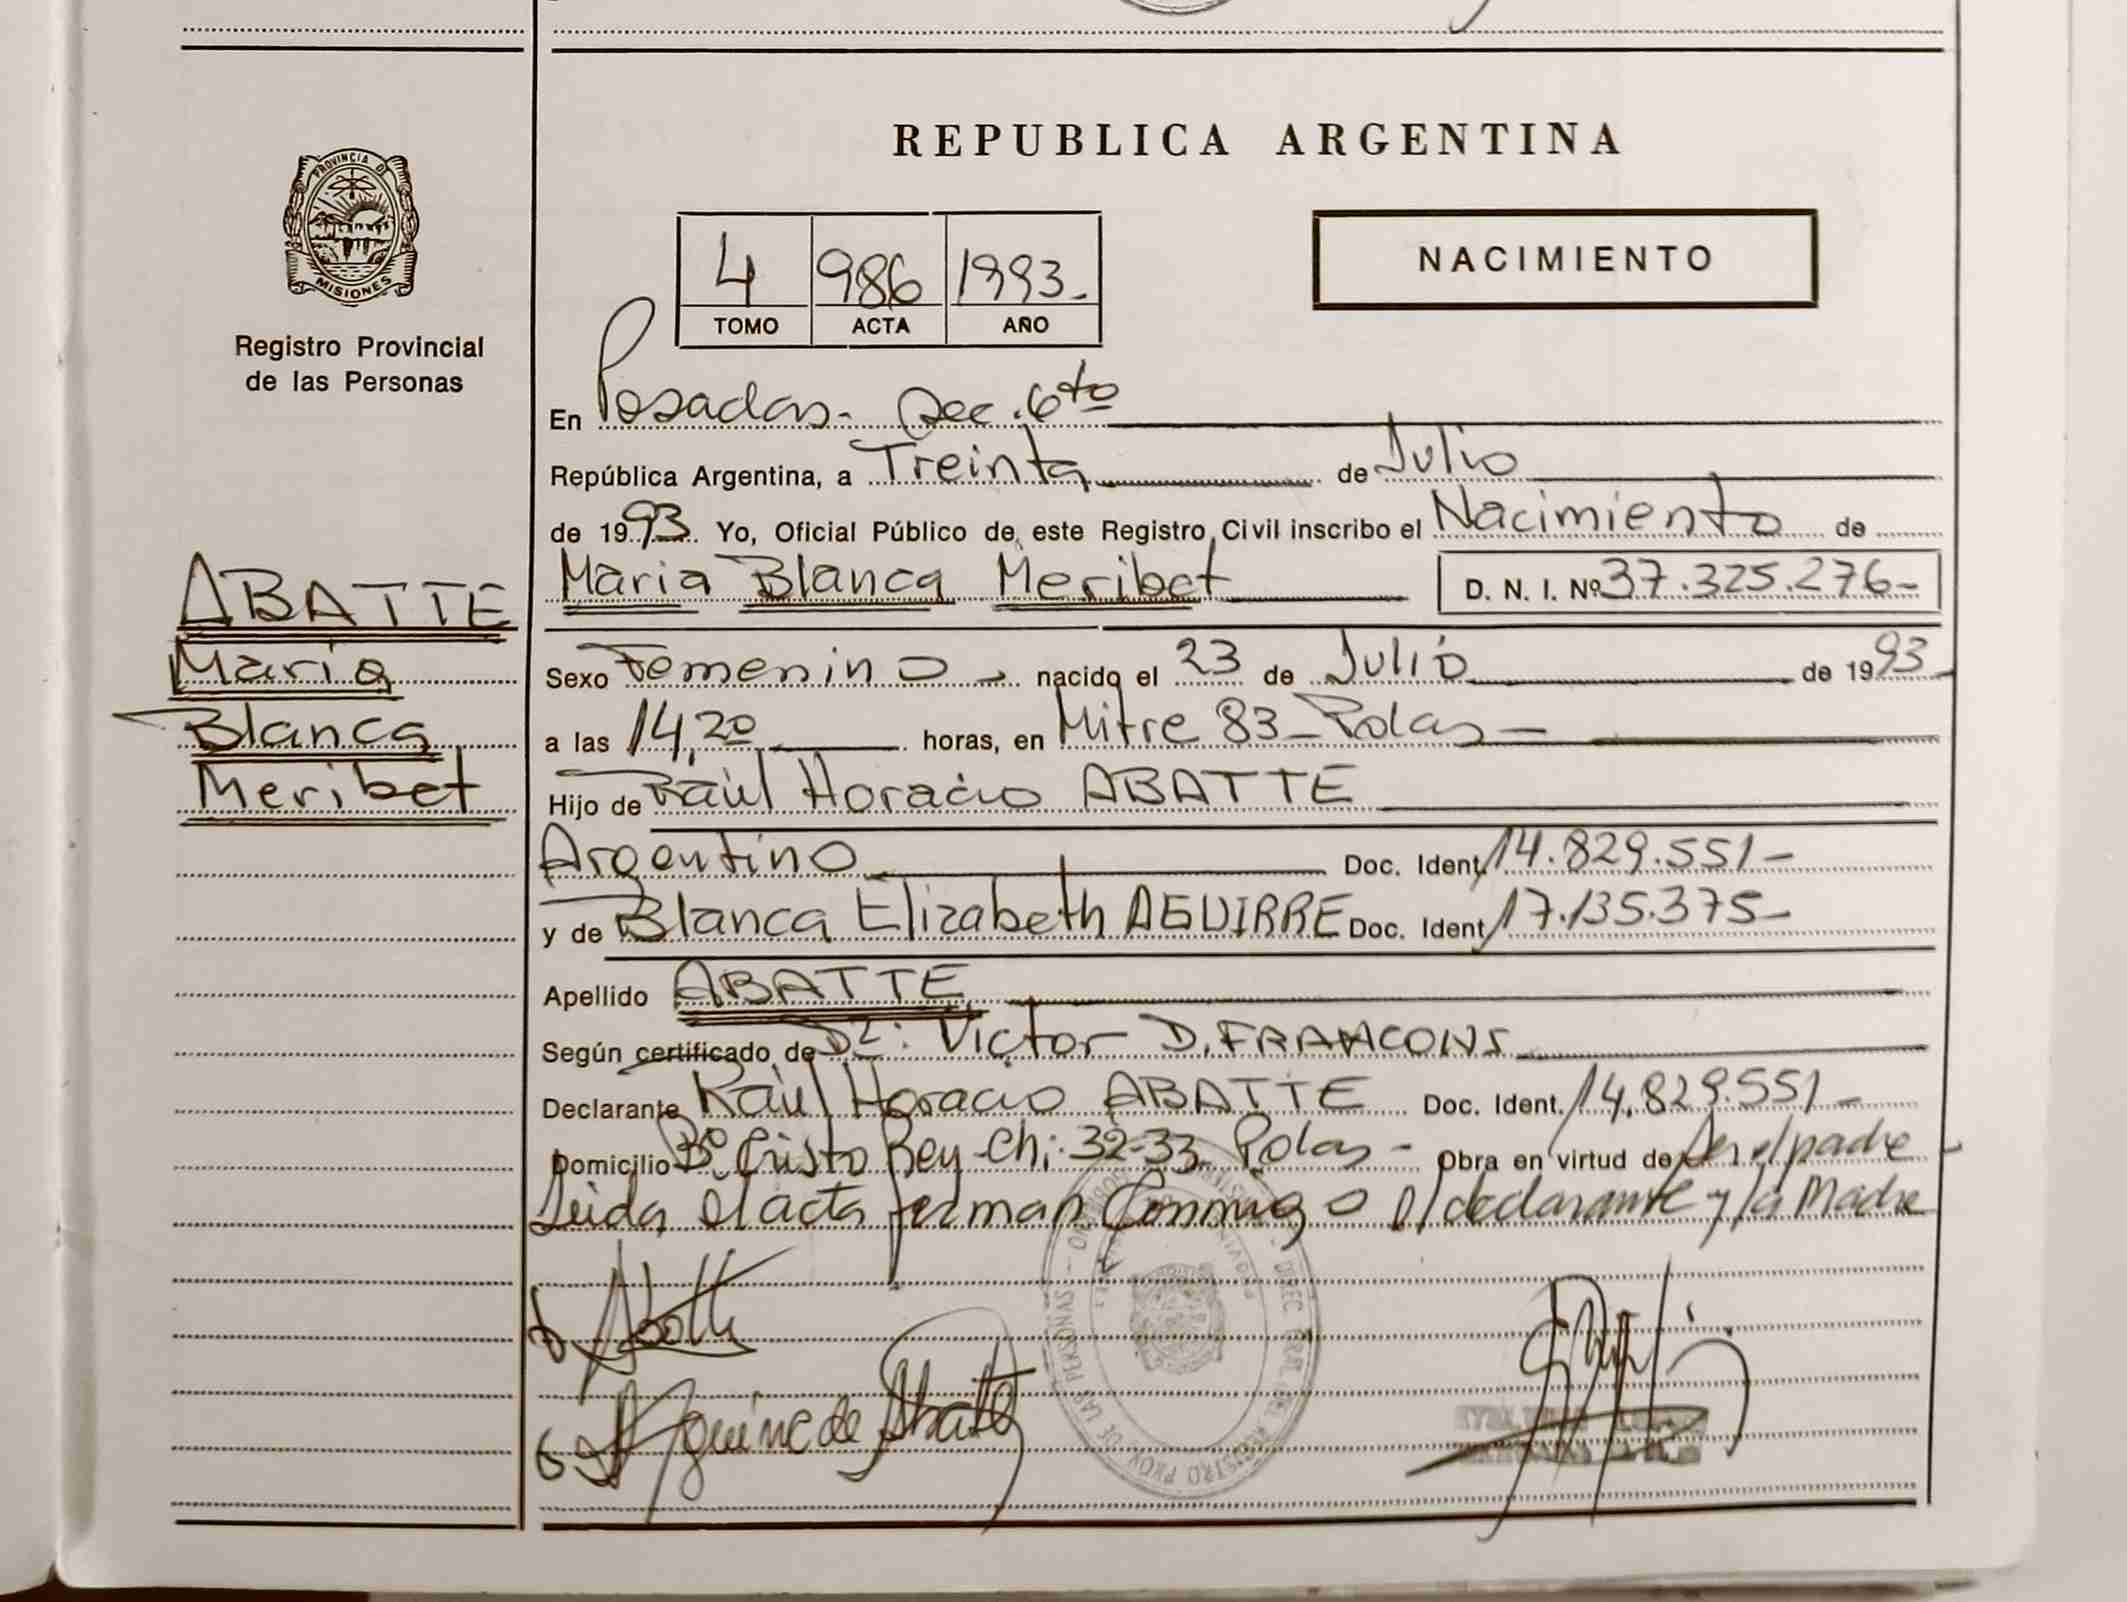 REPUBLICA ARGENTINA
PROVINCIA DE
MISIONES
Registro Provincial
de las Personas
NACIMIENTO
4 986 1993-
TOMO ACTA AÑO
En Posadas- Sec. 6to
República Argentina, a Treinta de Julio
de 1993 Yo, Oficial Público de este Registro Civil inscribo el Nacimiento de
Maria Blanca Meribet D. N. I. Nº 37.325.276-
ABATTE
Maria
Blanca
Meribet
Sexo Femenino - nacido el 23 de Julio de 1993
a las 14,20 horas, en Mitre 83 - Pdas -
Hijo de Raúl Horacio ABATTE
Argentino Doc. Ident. 14.829.551-
y de Blanca Elizabeth AGUIRRE Doc. Ident. 17.135.375-
Apellido ABATTE
Según certificado de Dr: Victor D. FRANCONS
Declarante Raúl Horacio ABATTE Doc. Ident. 14.829.551-
Domicilio Bº Cristo Rey - Ch: 32-33 Pdas - Obra en virtud de ser el padre
Leida el acta firman Conmigo el declarante y la Madre
Abatte
Aguirre de Abatte